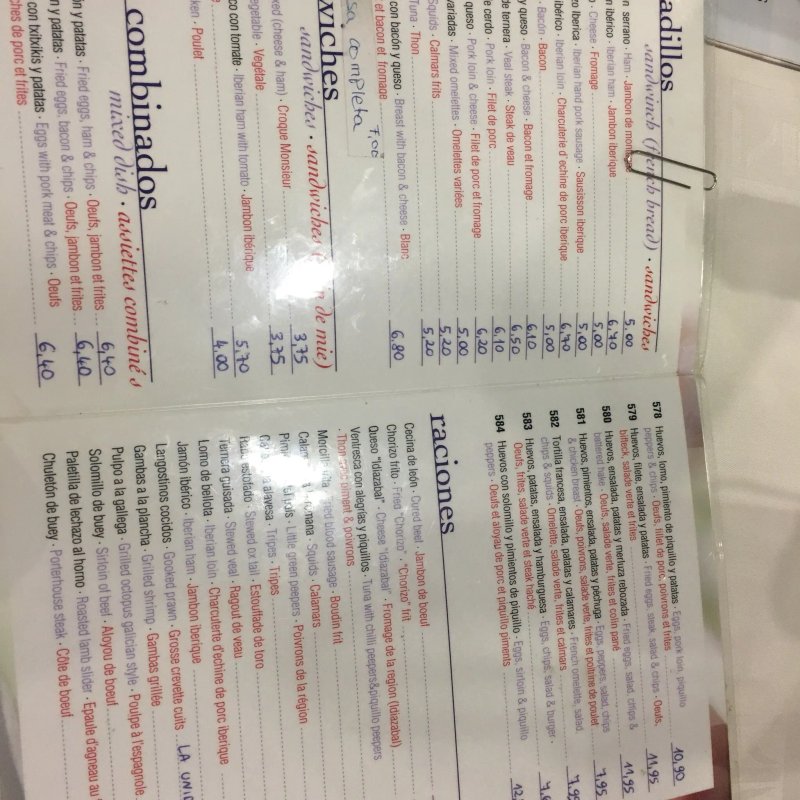 adillos
sandwinch (french bread) · sandwiches
n serrano · Ham · Jambon de mon 5,00
n ibérico · Iberian ham · Jambon iberique 6,70
o · Cheese · Fromage 5,00
zo Iberica · Iberian hand pork sausage · Sausisson iberique 5,00
ibérico · Iberian loin · Charcuterie d'echine de porc iberique 6,70
Bacón · Bacon 5,00
y queso · Bacon & cheese · Bacon et fromage 6,10
de ternera · Veal steak · Steak de veau 6,50
e cerdo · Pork loin · Filet de porc 6,10
queso · Pork loin & cheese · Filet de porc et fromage 6,20
variadas · Mixed omelettes · Omelettes variées 5,00
Squids · Calmars frits 5,20
Tuna · Thon 5,20
con bacón y queso · Breast with bacon & cheese · Blanc
et bacon et fromage 6,80
sa completa 7,00
wiches
sandwiches · sandwiches de mie)
ixed (cheese & ham) · Croque Monsieur 3,75
egetable · Vegétale 3,75
co con tomate · Iberian ham with tomato · Jambon ibérique 5,70
ken · Poulet 4,00
combinados
mixed dish · assiettes combinés
ón y patatas · Fried eggs, ham & chips · Oeufs, jambon et frites 6,40
n y patatas · Fried eggs, bacon & chips · Oeufs, jambon et frites 6,40
con txitxikis y patatas · Eggs with pork meat & chips · Oeufs 6,40
ches de porc et frites
578 Huevos, lomo, pimiento de piquillo y patatas · Eggs, pork loin, piquillo
peppers & chips · Oeufs, fillet de porc, poivrons et frites 10,90
579 Huevos, filete, ensalada y patatas · Fried eggs, steak, salad & chips · Oeufs,
bifteck, salade verte et frites 11,95
580 Huevos, ensalada, patatas y merluza rebozada · Fried eggs, salad, chips &
battered hake · Oeufs, salade verte, frites et colin pané 11,95
581 Huevos, pimientos, ensalada, patatas y pechuga · Eggs, peppers, salad, chips
& chicken breast · Oeufs, poivrons, salade verte, frites et poitrine de poulet 7,95
582 Tortilla francesa, ensalada, patatas y calamares · French omelette, salad,
chips & squids · Omelette, salade verte, frites et calmars
583 Huevos, patatas, ensalada y hamburguesa · Eggs, chips, salad & burger ·
Oeufs, frites, salade verte et steak haché
584 Huevos con solomillo y pimientos de piquillo · Eggs, sirloin & piquillo
peppers · Oeufs et aloyau de porc et piquillo piments 12,
raciones
Cecina de león · Cured beef · Jambon de boeuf
Chorizo frito · Fried "Chorizo" · "Chorizo" frit
Queso "Idiazabal" · Cheese "Idiazabal" · Fromage de la region (Idiazabal)
Ventresca con alegrías y piquillos · Tuna with chilli peepers&piquillo peepers
· Thon piment & poivrons
Morcill blood sausage · Boudin frit
Calam mana · Squids · Calamars
Pimi · Little green peepers · Poivrons de la région
Ca alavesa · Tripes · Tripes
estofado · Stewed ox tail · Estouffade de toro
Ternera guisada · Stewed veal · Ragout de veau
Lomo de bellota · Iberian loin · Charcuterie d'echine de porc iberique
Jamón ibérico · Iberian ham · Jambon iberique
Langostinos cocidos · Gooked prawn · Grosse crevette cuits LA UNID
Gambas a la plancha · Grilled shrimp · Gambas grillée
Pulpo a la gallega · Grilled octopus galician style · Poulpe à l'espagnole
Solomillo de buey · Sirloin of beef · Aloyou de boeuf
Paletilla de lechazo al horno · Roasted lamb slider · Epaule d'agneau au
Chuletón de buey · Porterhouse steak · Côte de boeuf